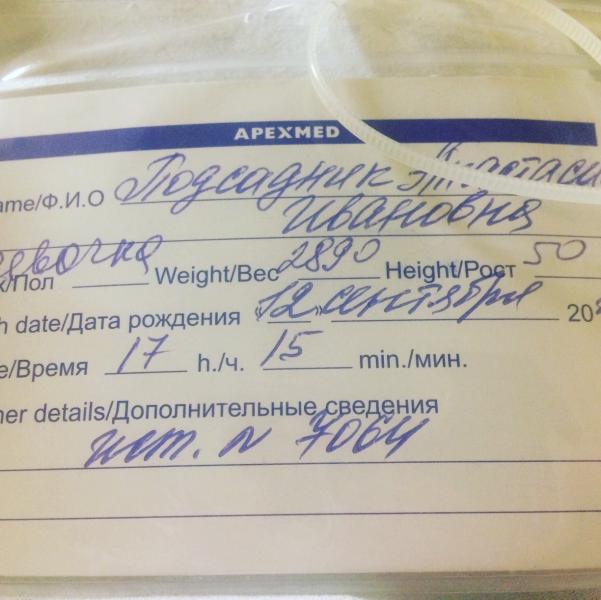 APEXMED
ame/Ф.И.О Подсадник Анастаси
Ивановна
/Пол девочка Weight/Вес 2890 Height/Рост 50
h date/Дата рождения «12» сентября 20
e/Время 17 h./ч. 15 min./мин.
her details/Дополнительные сведения
ист. N 7064